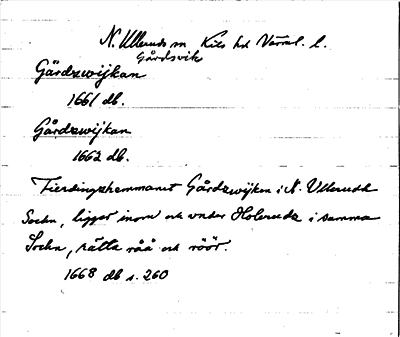 N. Ulleruds sn Kils hd Värml. l.
Gårdsvik
Gårdzwijkan
1661 db.
Gårdzwijkan
1662 db.
Fierdingzhemmanet Gårdzwijken i N. Ullerudh
Sochn, ligger inom och under Holerudz i samma
Sochn, rätta råå och röör.
1668 db s. 260